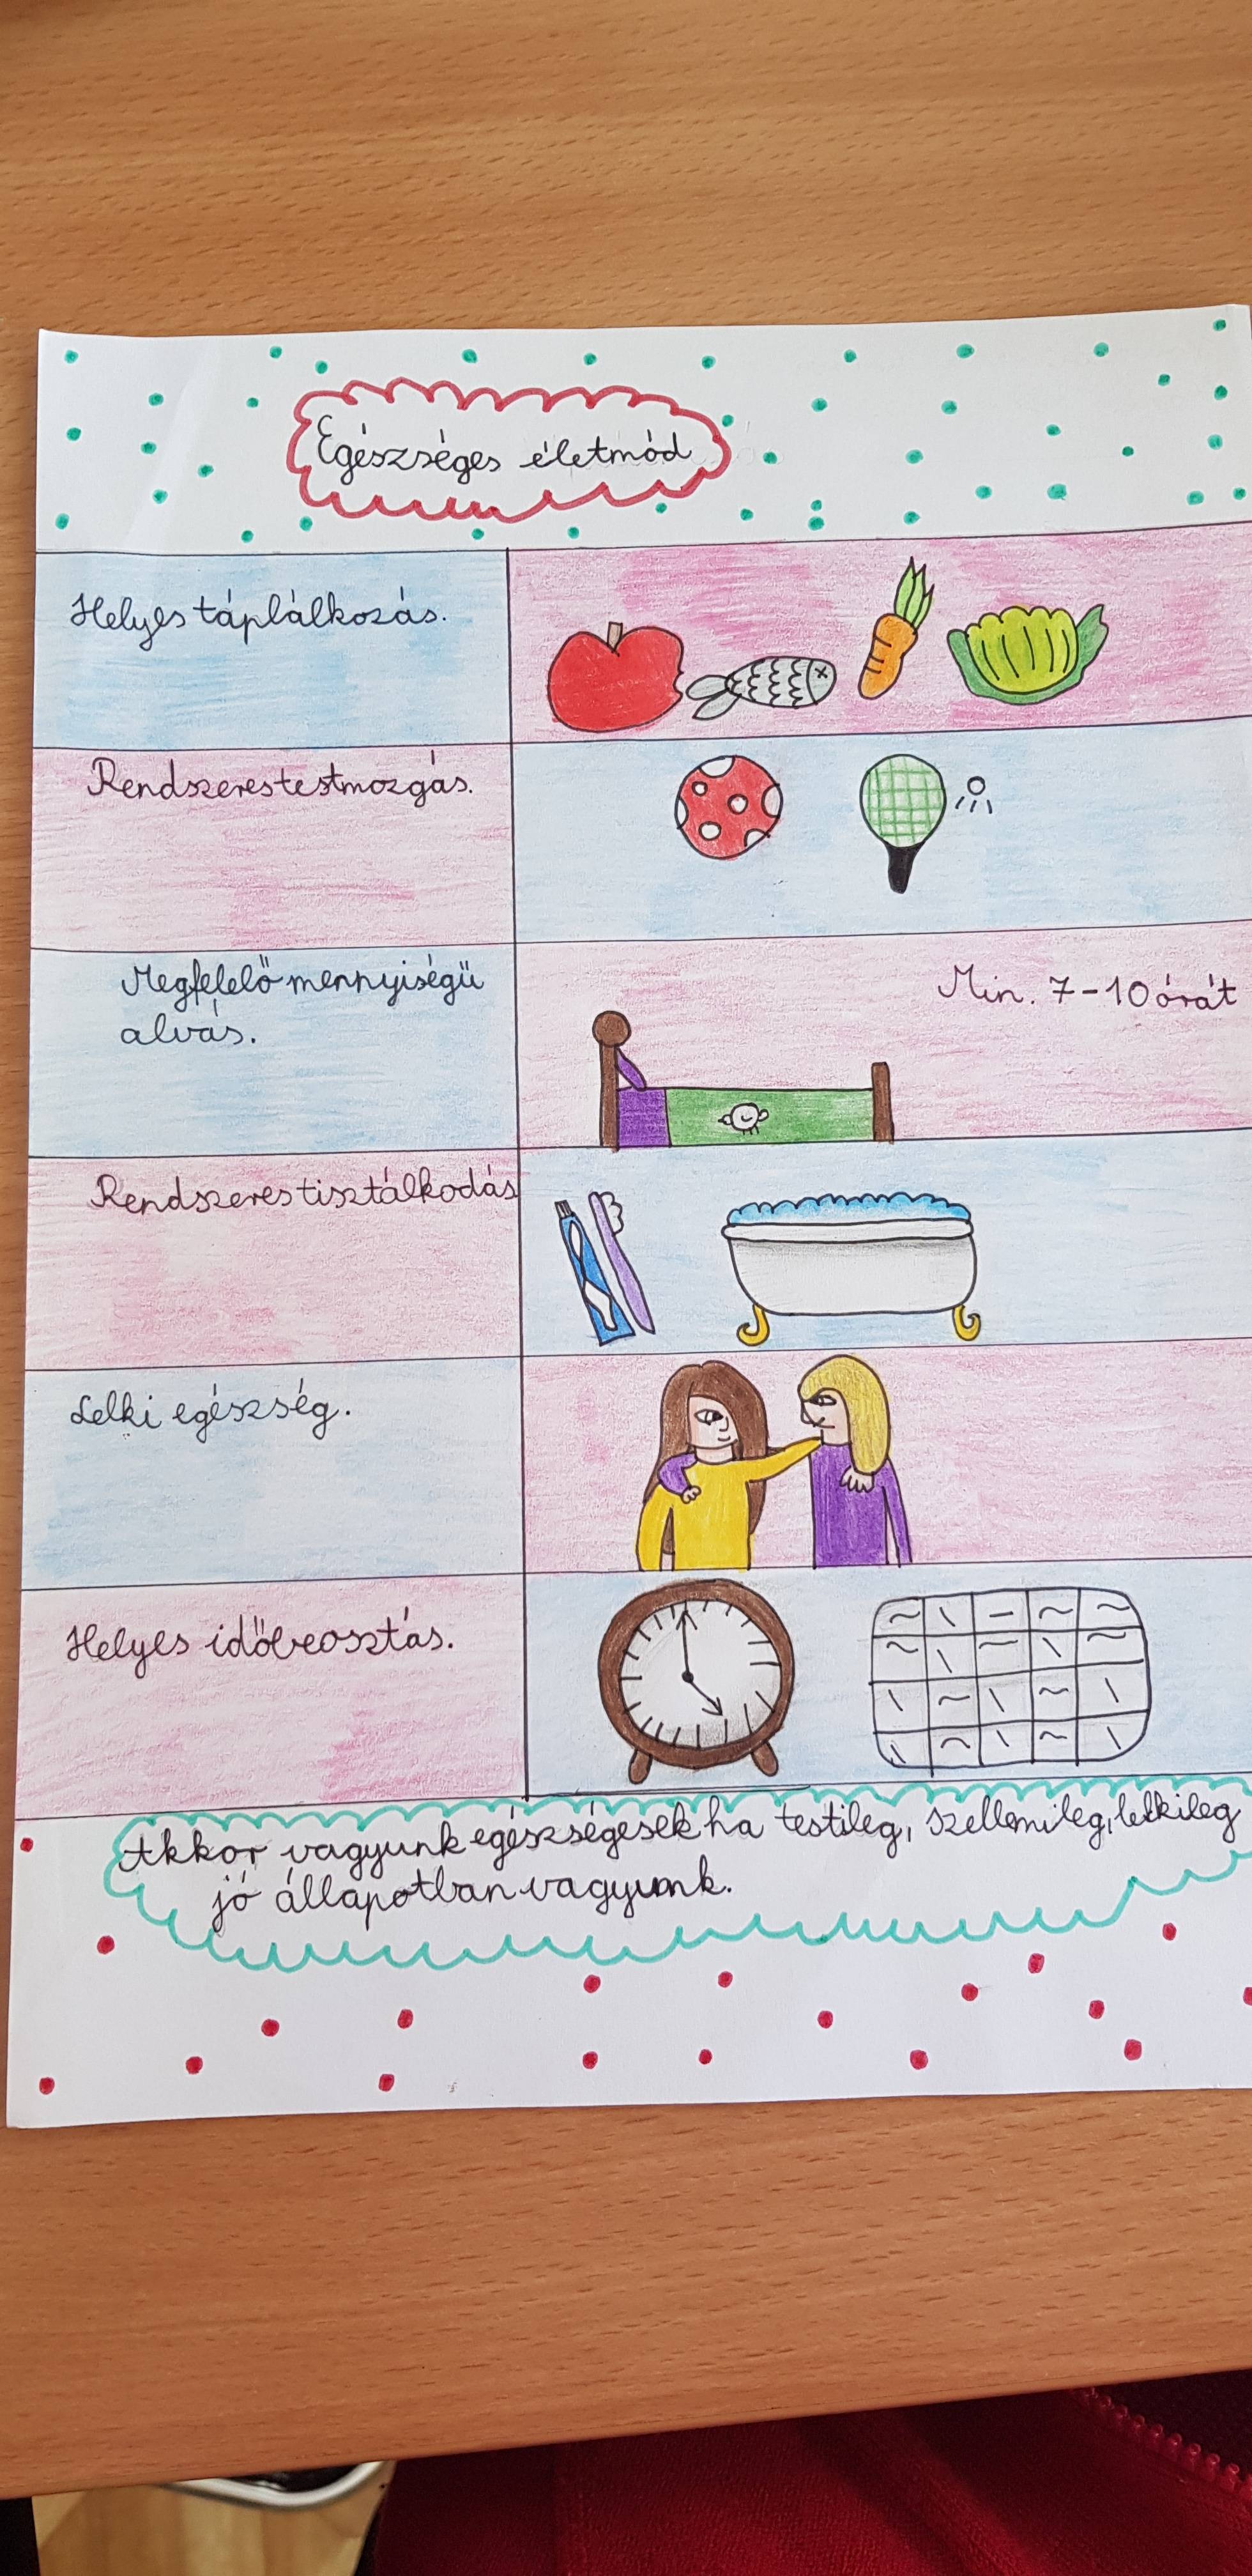 Egészséges életmód
Helyes táplálkozás.
Rendszeres testmozgás.
Megfelelő mennyiségű
alvás.
Min. 7-10 órát
Rendszeres tisztálkodás
Lelki egészség.
Helyes időbeosztás.
Akkor vagyunk egészségesek ha testileg, szellemileg, lelkileg
jó állapotban vagyunk.